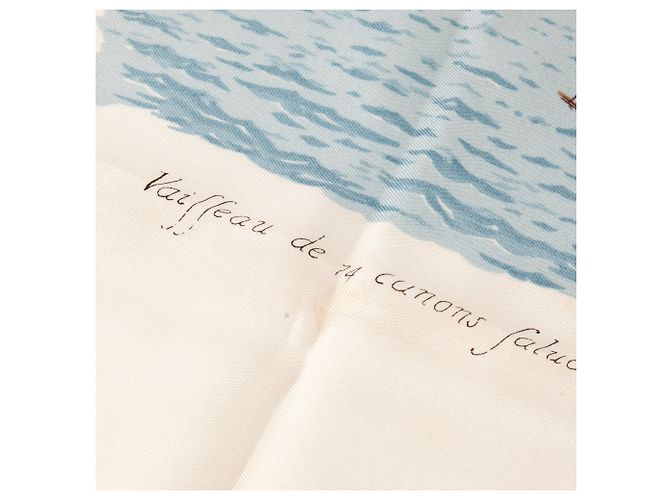 Vaiſſeau de 74 canons ſalua